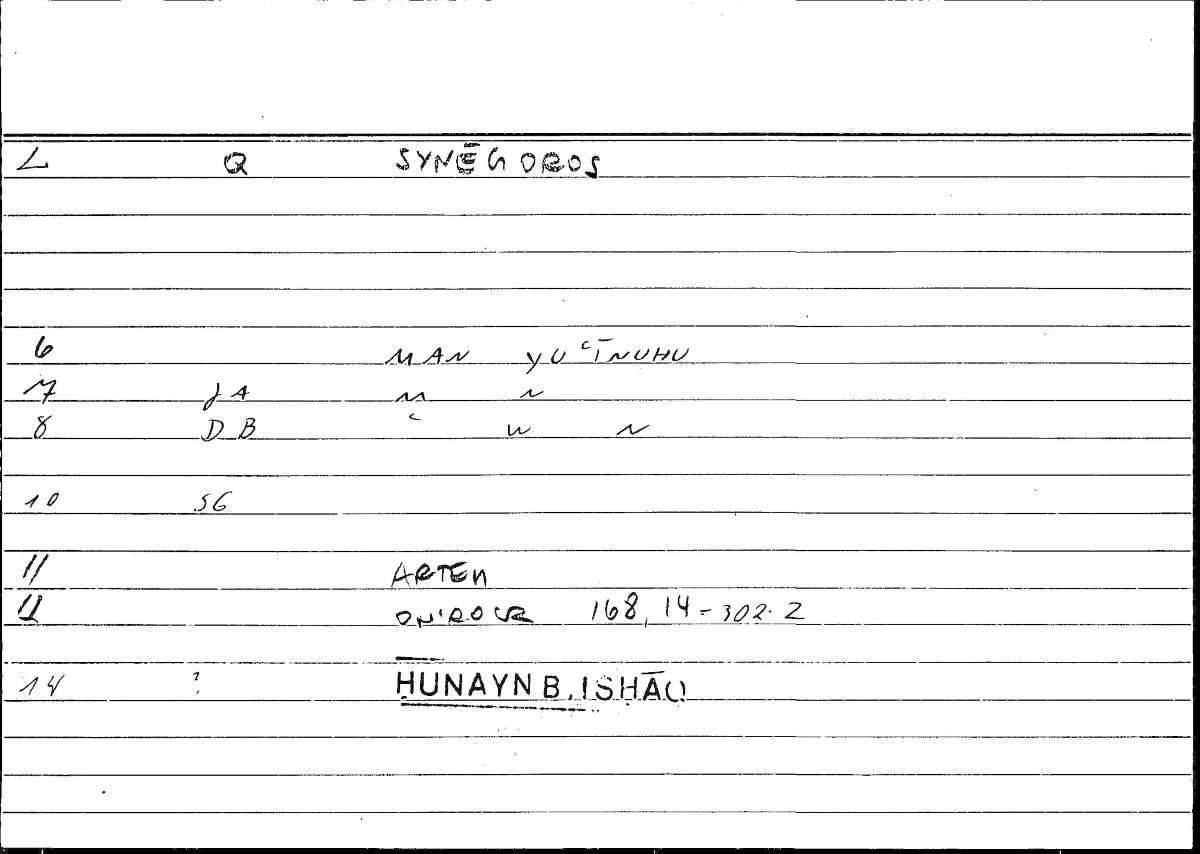 L Q SYNĒGOROS
6 MAN YUʿĪNUHU
7 JA M N
8 DB ʿ W N
10 SG
11 ARTEM
12 ONIROCR 168,14 = 302.2
14 ? ḤUNAYN B. ISḤĀQ